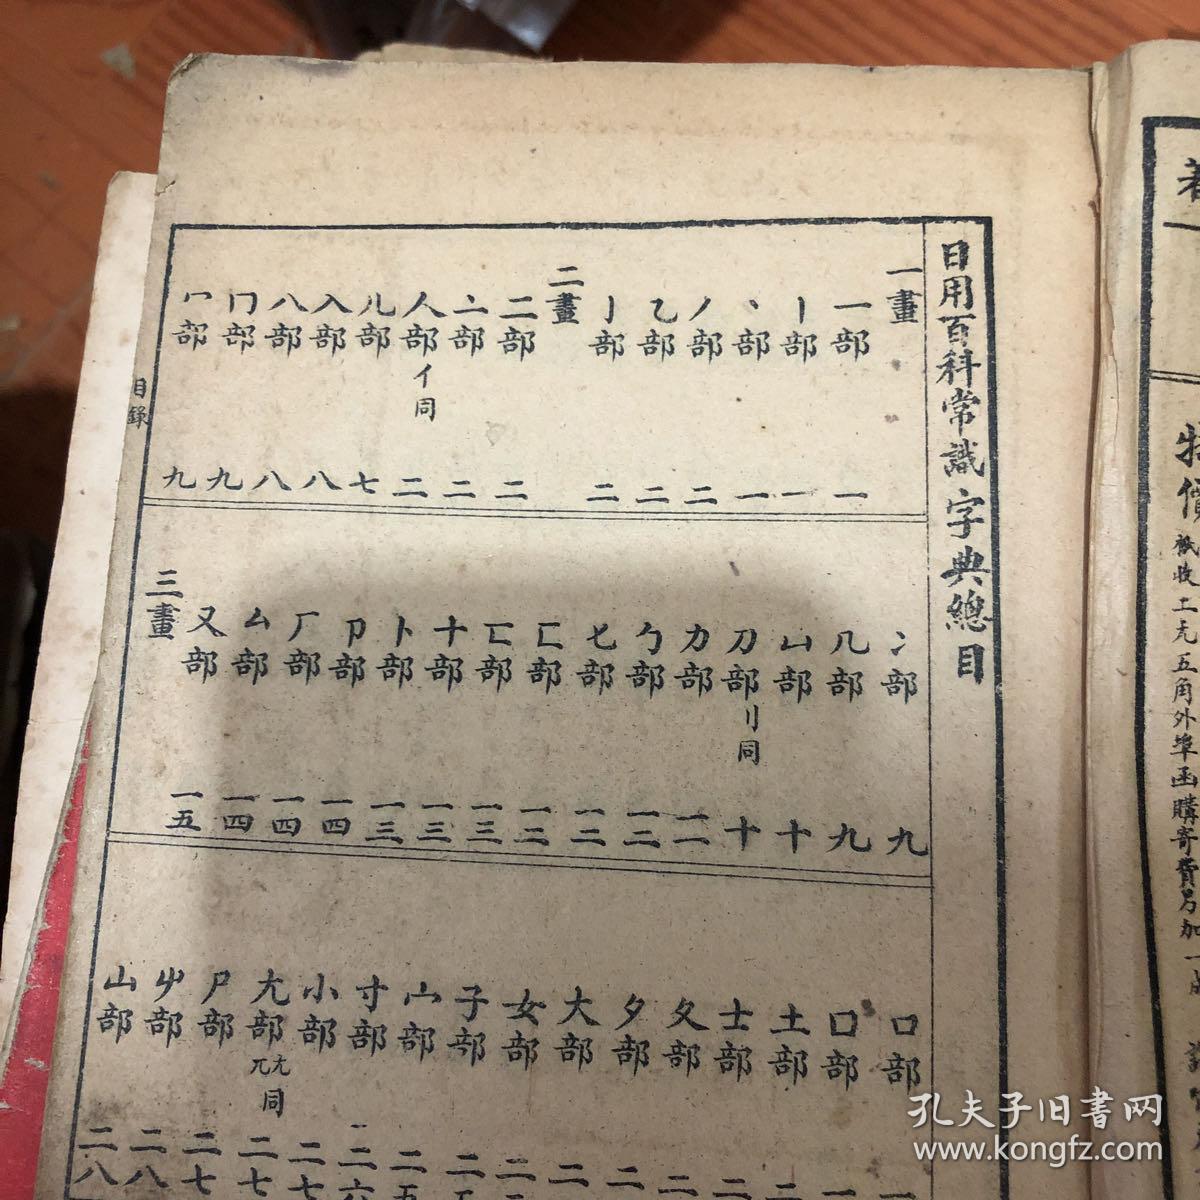 日用百科常識字典總目
一畫
一部 一
丨部 一
丶部 一
丿部 二
乙部 二
亅部 二
二畫
二部 二
亠部 二
人部 亻同 二
儿部 七
入部 八
八部 八
冂部 九
冖部 九
冫部 九
几部 九
凵部 十
刀部 刂同 十
力部 一一
勹部 一二
匕部 一二
匚部 一二
匸部 一三
十部 一三
卜部 一三
卩部 一四
厂部 一四
厶部 一四
又部 一五
三畫
口部
囗部
土部
士部
夂部
夕部
大部
女部
子部
宀部
寸部
小部
尢部 尣兀同 二七
尸部 二七
屮部 二八
山部 二八
目錄
特價 祇收工元五角外埠函購寄費另加一成
孔夫子旧书网
www.kongfz.com